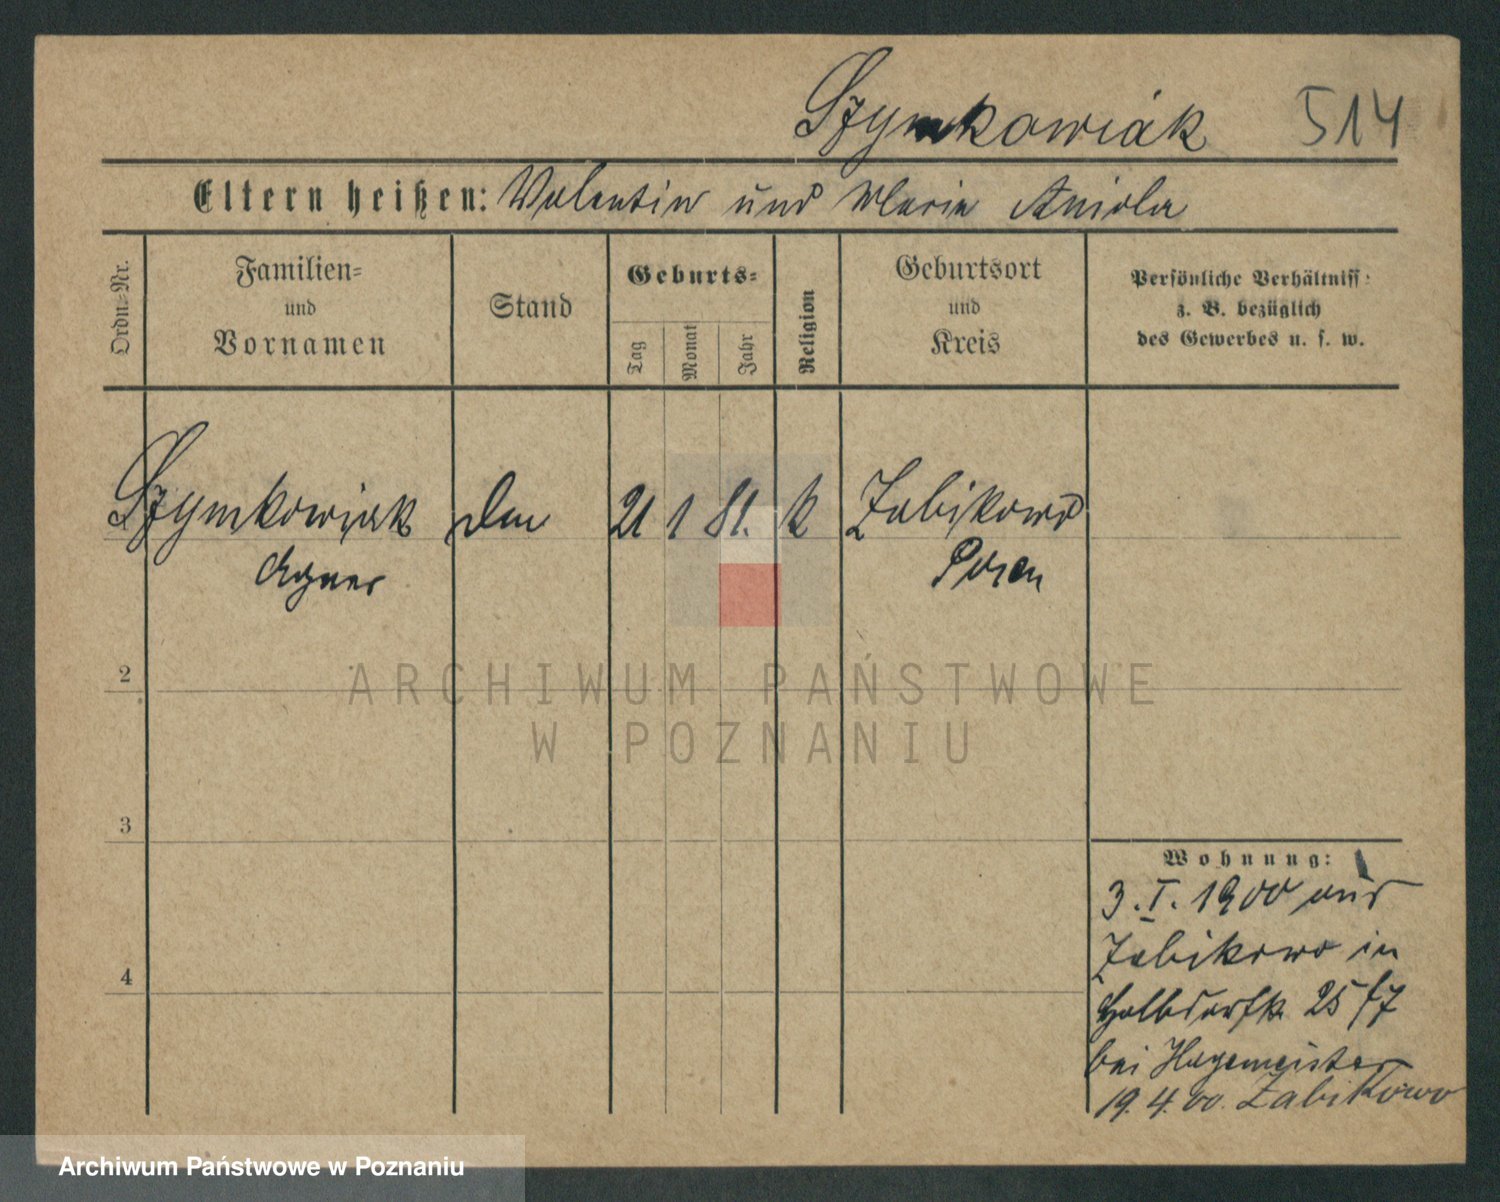 Szymkowiak 514
Eltern heißen: Valentin und Marie Aniola
Ordn=Nr.
Familien=
und
Vornamen
Stand
Geburts=
Tag
Monat
Jahr
Religion
Geburtsort
und
Kreis
Persönliche Verhältniss
z. B. bezüglich
des Gewerbes u. s. w.
Szymkowiak 21 1 81. k Zabikowo
Agnes Posen
2
ARCHIWUM PAŃSTWOWE
W POZNANIU
3
Wohnung:
3. I. 1900 aus
Zabikowo in
Halbdorfstr. 25
4
bei Hagemeister
19. 4. 00. Zabikowo
Archiwum Państwowe w Poznaniu